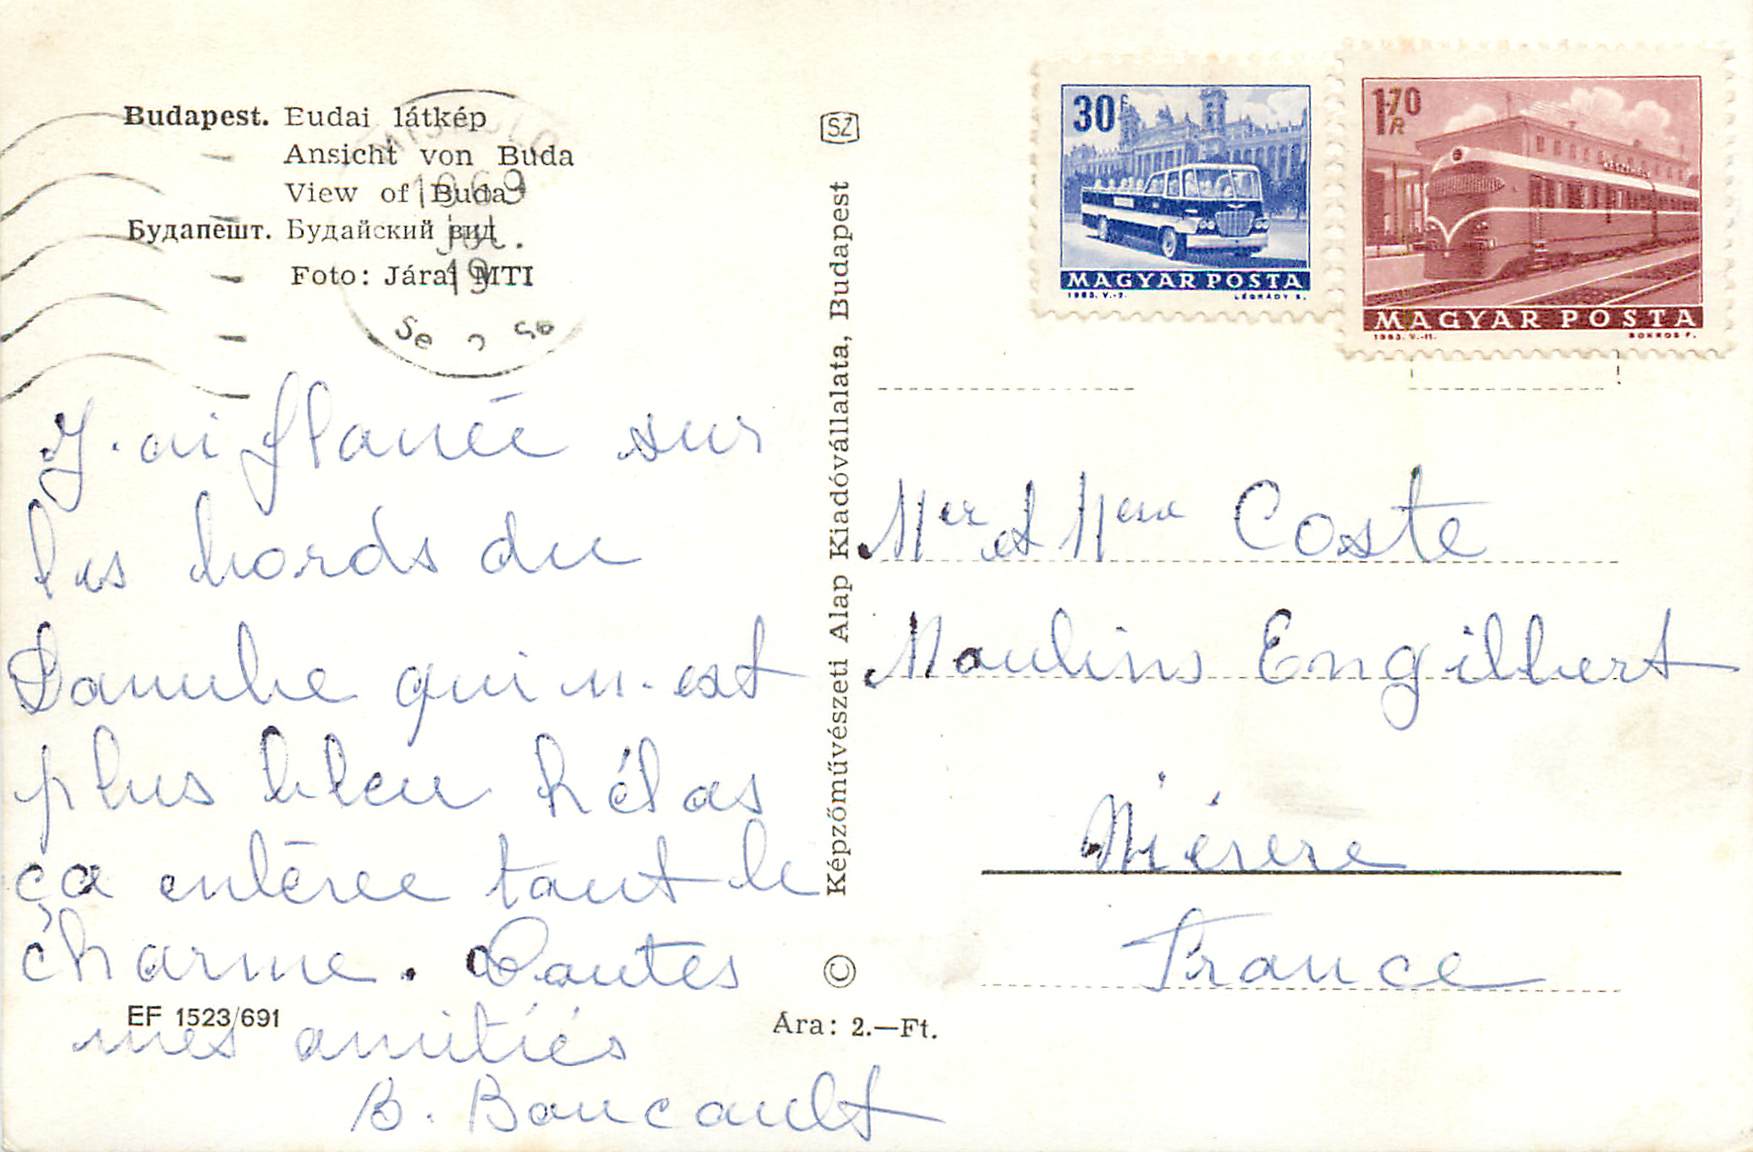 Budapest. Eudai látkép
Ansicht von Buda
View of Buda
Будапешт. Будайский вид
Foto: Járai MTI
1969
júl.
19
SZ
30f
MAGYAR POSTA
1963. V.-7.
LÉGRÁDY S.
1.70
FT
MAGYAR POSTA
1963. V.-11.
SOKROS F.
J'ai flanée sur
les bords du
Danube qui n'est
plus bleu hélas
ça enlèree tant le
charme. Toutes
mes amitiés
B. Boucault
Képzőművészeti Alap Kiadóvállalata, Budapest
©
Mr et Mme Coste
Moulins Engilbert
Nièvre
France
EF 1523/691
Ára: 2.—Ft.